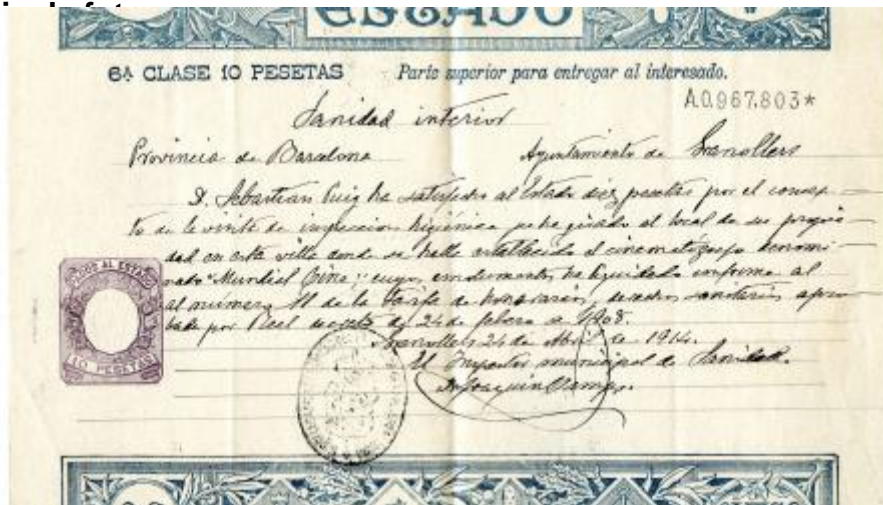 ESTADO
6ª CLASE 10 PESETAS Parte superior para entregar al interesado.
A0.967.803*
Sanidad interior
Provincia de Barcelona Ayuntamiento de Granollers
D. Sebastian Puig ha satisfecho al Estado diez pesetas por el concep-
to de la visita de inspeccion higiénica que ha girado al local de su propie-
dad en esta villa donde se halla establecido el cinematógrafo denomi-
nado "Mundial Cine", cuyos emolumentos ha liquidado conforme al
al número 11 de la tarifa de honorarios, derechos sanitarios apro-
bada por Real decreto de 24 de febrero de 1908.
Granollers 24 de Abril de 1914.
El Inspector municipal de Sanidad.
Dr Joaquin Llamas.
PAGO AL ESTADO
10 PESETAS